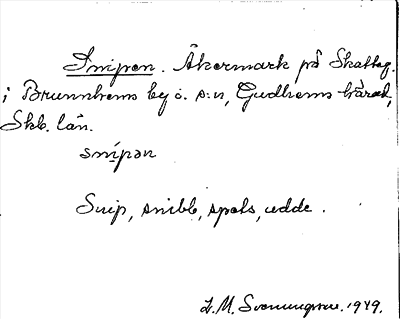 Snipen. Åkermark på Skattag.
i Brunnhems by o. s:n, Gudhems härad,
Skb. län.
snipən
Snip, snibb, spets, udde.
L.M. Svenungsson. 1949.